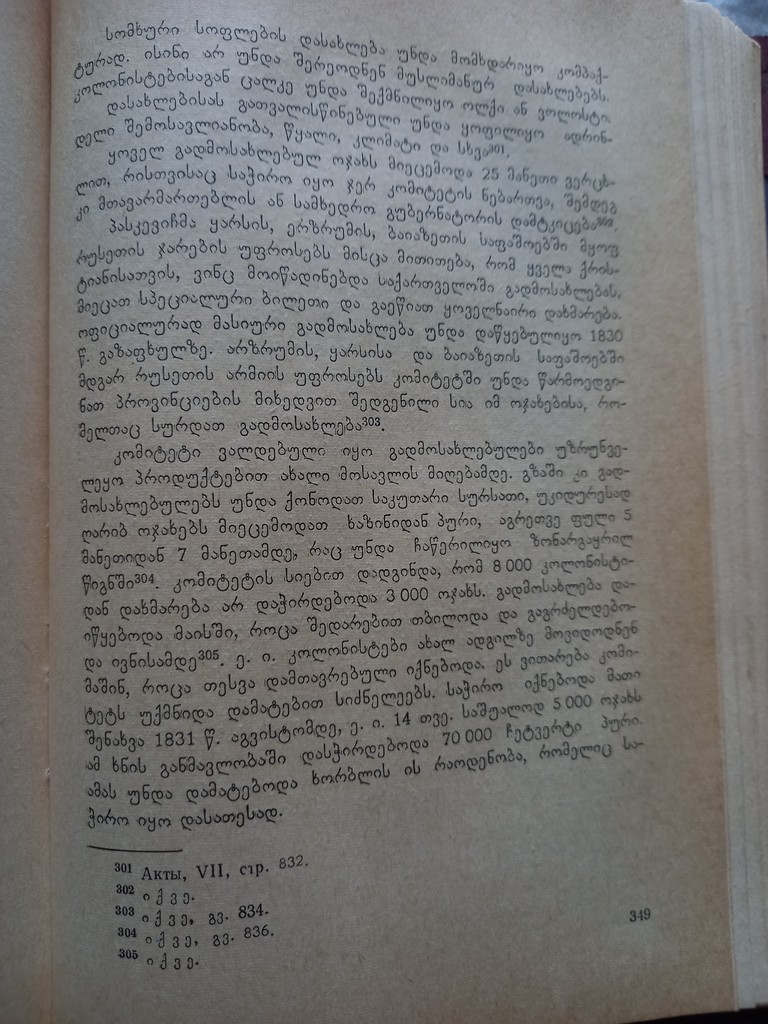 სომხური სოფლების დასახლება უნდა მომხდარიყო კომპაქ-
ტურად. ისინი არ უნდა შერეოდნენ მუსლიმანურ დასახლებებს.
კოლონისტებისაგან ცალკე უნდა შექმნილიყო ოლქი ან ვოლოსტი.
დასახლებისას გათვალისწინებული უნდა ყოფილიყო ადრინ-
დელი შემოსავლიანობა, წყალი, კლიმატი და სხვა301.
ყოველ გადმოსახლებულ ოჯახს მიეცემოდა 25 მანეთი ვერცხ-
ლით, რისთვისაც საჭირო იყო ჯერ კომიტეტის ნებართვა, შემდეგ
კი მთავარმართებლის ან სამხედრო გუბერნატორის დამტკიცება302.
პასკევიჩმა ყარსის, ერზრუმის, ბაიაზეთის საფაშოებში მყოფ
რუსეთის ჯარების უფროსებს მისცა მითითება, რომ ყველა ქრის-
ტიანისათვის, ვინც მოიწადინებდა საქართველოში გადმოსახლებას,
მიეცათ სპეციალური ბილეთი და გაეწიათ ყოველნაირი დახმარება.
ოფიციალურად მასიური გადმოსახლება უნდა დაწყებულიყო 1830
წ. გაზაფხულზე. არზრუმის, ყარსისა და ბაიაზეთის საფაშოებში
მდგარ რუსეთის არმიის უფროსებს კომიტეტში უნდა წარმოედგი-
ნათ პროვინციების მიხედვით შედგენილი სია იმ ოჯახებისა, რო-
მელთაც სურდათ გადმოსახლება303.
კომიტეტი ვალდებული იყო გადმოსახლებულები უზრუნვე-
ლეყო პროდუქტებით ახალი მოსავლის მიღებამდე. გზაში კი გად-
მოსახლებულებს უნდა ქონოდათ საკუთარი სურსათი, უკიდურესად
ღარიბ ოჯახებს მიეცემოდათ ხაზინიდან პური, აგრეთვე ფული 5
მანეთიდან 7 მანეთამდე, რაც უნდა ჩაწერილიყო ზონარგაყრილ
წიგნში304. კომიტეტის სიებით დადგინდა, რომ 8 000 კოლონისტი-
დან დახმარება არ დაჭირდებოდა 3 000 ოჯახს. გადმოსახლება და-
იწყებოდა მაისში, როცა შედარებით თბილოდა და გაგრძელდებო-
და ივნისამდე305. ე. ი. კოლონისტები ახალ ადგილზე მოვიდოდნენ
მაშინ, როცა თესვა დამთავრებული იქნებოდა. ეს ვითარება კომი-
ტეტს უქმნიდა დამატებით სიძნელეებს. საჭირო იქნებოდა მათი
შენახვა 1831 წ. აგვისტომდე, ე. ი. 14 თვე. საშუალოდ 5 000 ოჯახს
ამ ხნის განმავლობაში დასჭირდებოდა 70 000 ჩეტვერტი პური.
ამას უნდა დამატებოდა ხორბლის ის რაოდენობა, რომელიც სა-
ჭირო იყო დასათესად.
301 Акты, VII, стр. 832.
302 იქვე.
303 იქვე, გვ. 834.
304 იქვე, გვ. 836.
305 იქვე.
349